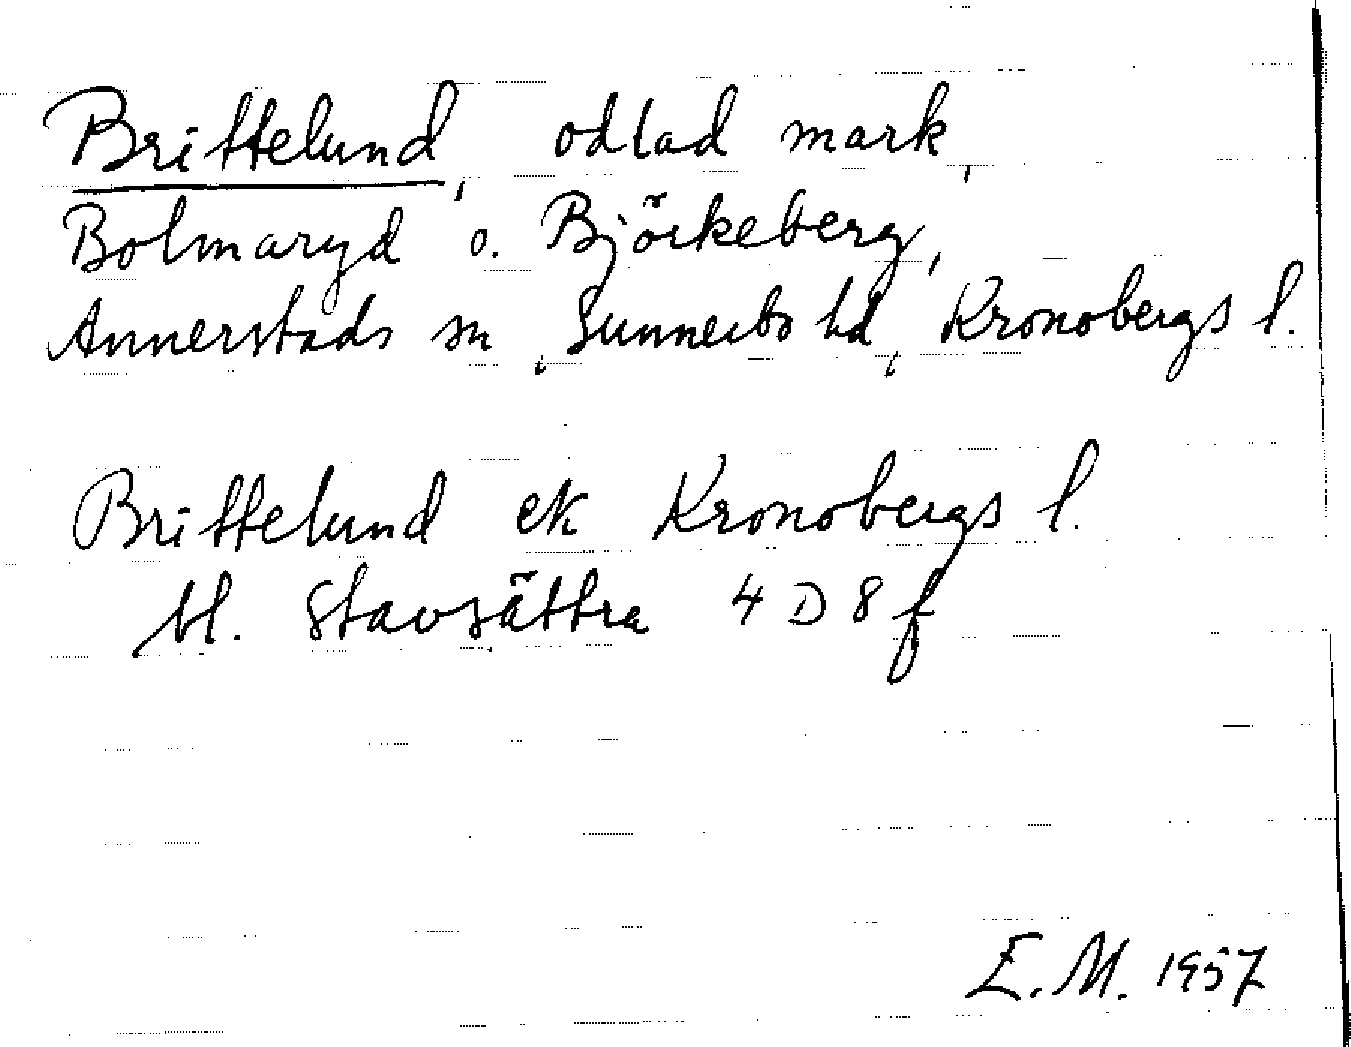 Brittelund, odlad mark,
Bolmaryd o. Björkeberg,
Annerstads sn, Sunnerbo hd, Kronobergs l.
Brittelund ek Kronobergs l.
bl. Stavsättra 4 D 8 f
E. M. 1957